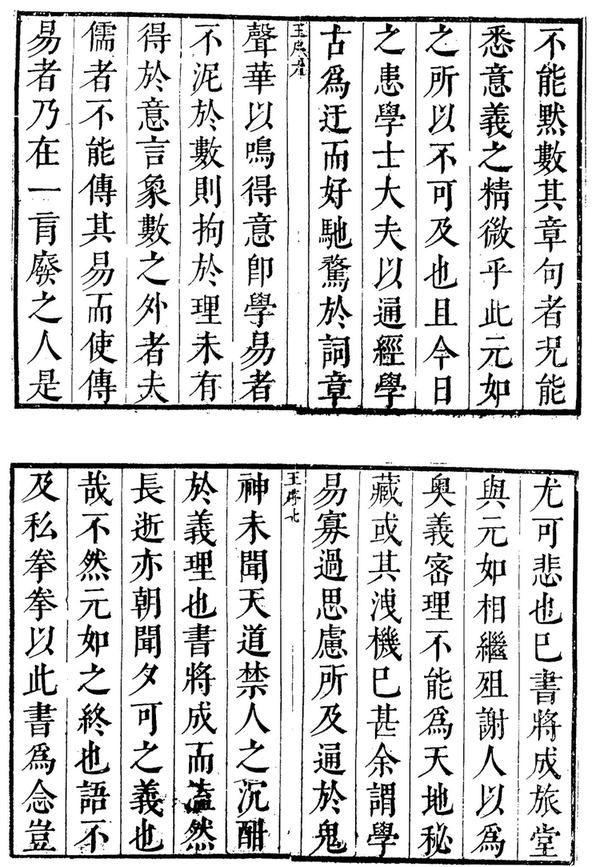 不能默數其章句者况能
悉意義之精微乎此元如
之所以不可及也且今日
之患學士大夫以通經學
古爲迂而好馳騖於詞章
王序
聲華以鳴得意卽學易者
不泥於數則拘於理未有
得於意言象數之外者夫
儒者不能傳其易而使傳
易者乃在一盲廢之人是
尤可悲也巳書將成旅堂
與元如相繼殂謝人以爲
奧義審理不能爲天地秘
藏或其洩機巳甚余謂學
易寡過思慮所及通於鬼
王序七
神未聞天道禁人之沉酣
於義理也書將成而溘然
長逝亦朝聞夕可之義也
哉不然元如之終也語不
及私拳拳以此書爲念豈